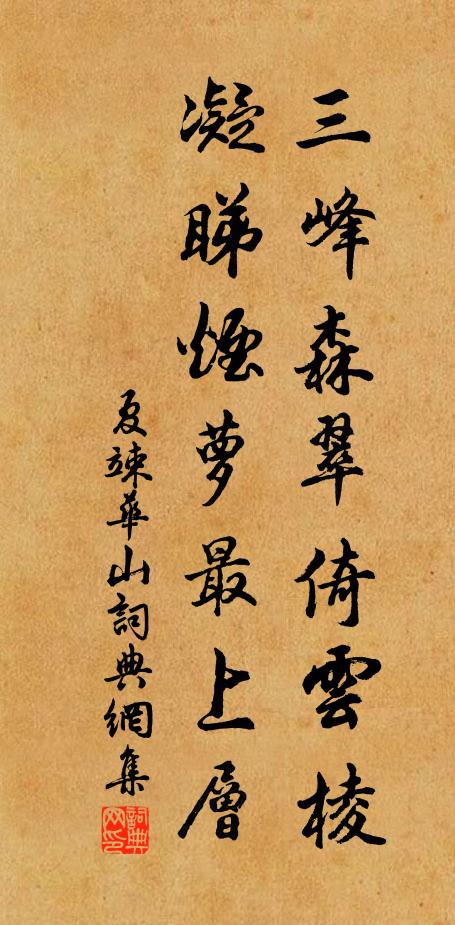 三峰森翠倚雲棱
凝睇煙萝最上層
夏竦華山詞典網集
詞典网印